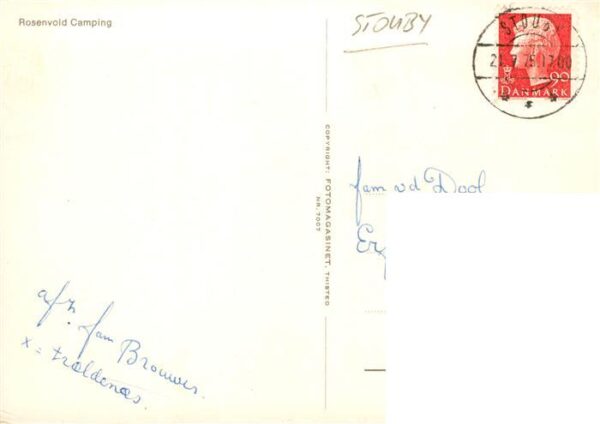 Rosenvold Camping
STOUBY
STOUBY
90
DANMARK
COPYRIGHT: FOTOMAGASINET, THISTED
NR. 7007
fam vd Dool
afz. fam Brouwer.
x = traldenæs.